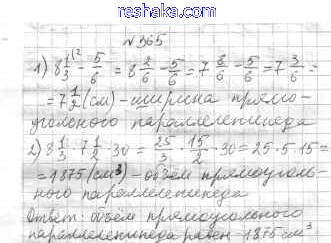 reshaka.com
№365
1) 8 1/3 (2 - 5/6 = 8 2/6 - 5/6 = 7 8/6 - 5/6 = 7 3/6 =
= 7 1/2 (см) - ширина прямо-
угольного параллелепипеда
2) 8 1/3 · 7 1/2 · 30 = 25/3 · 15/2 · 30 = 25 · 5 · 15 =
= 1875 (см³) - объём прямоуголь-
ного параллелепипеда
Ответ: объём прямоугольного
параллелепипеда равен 1875 см³